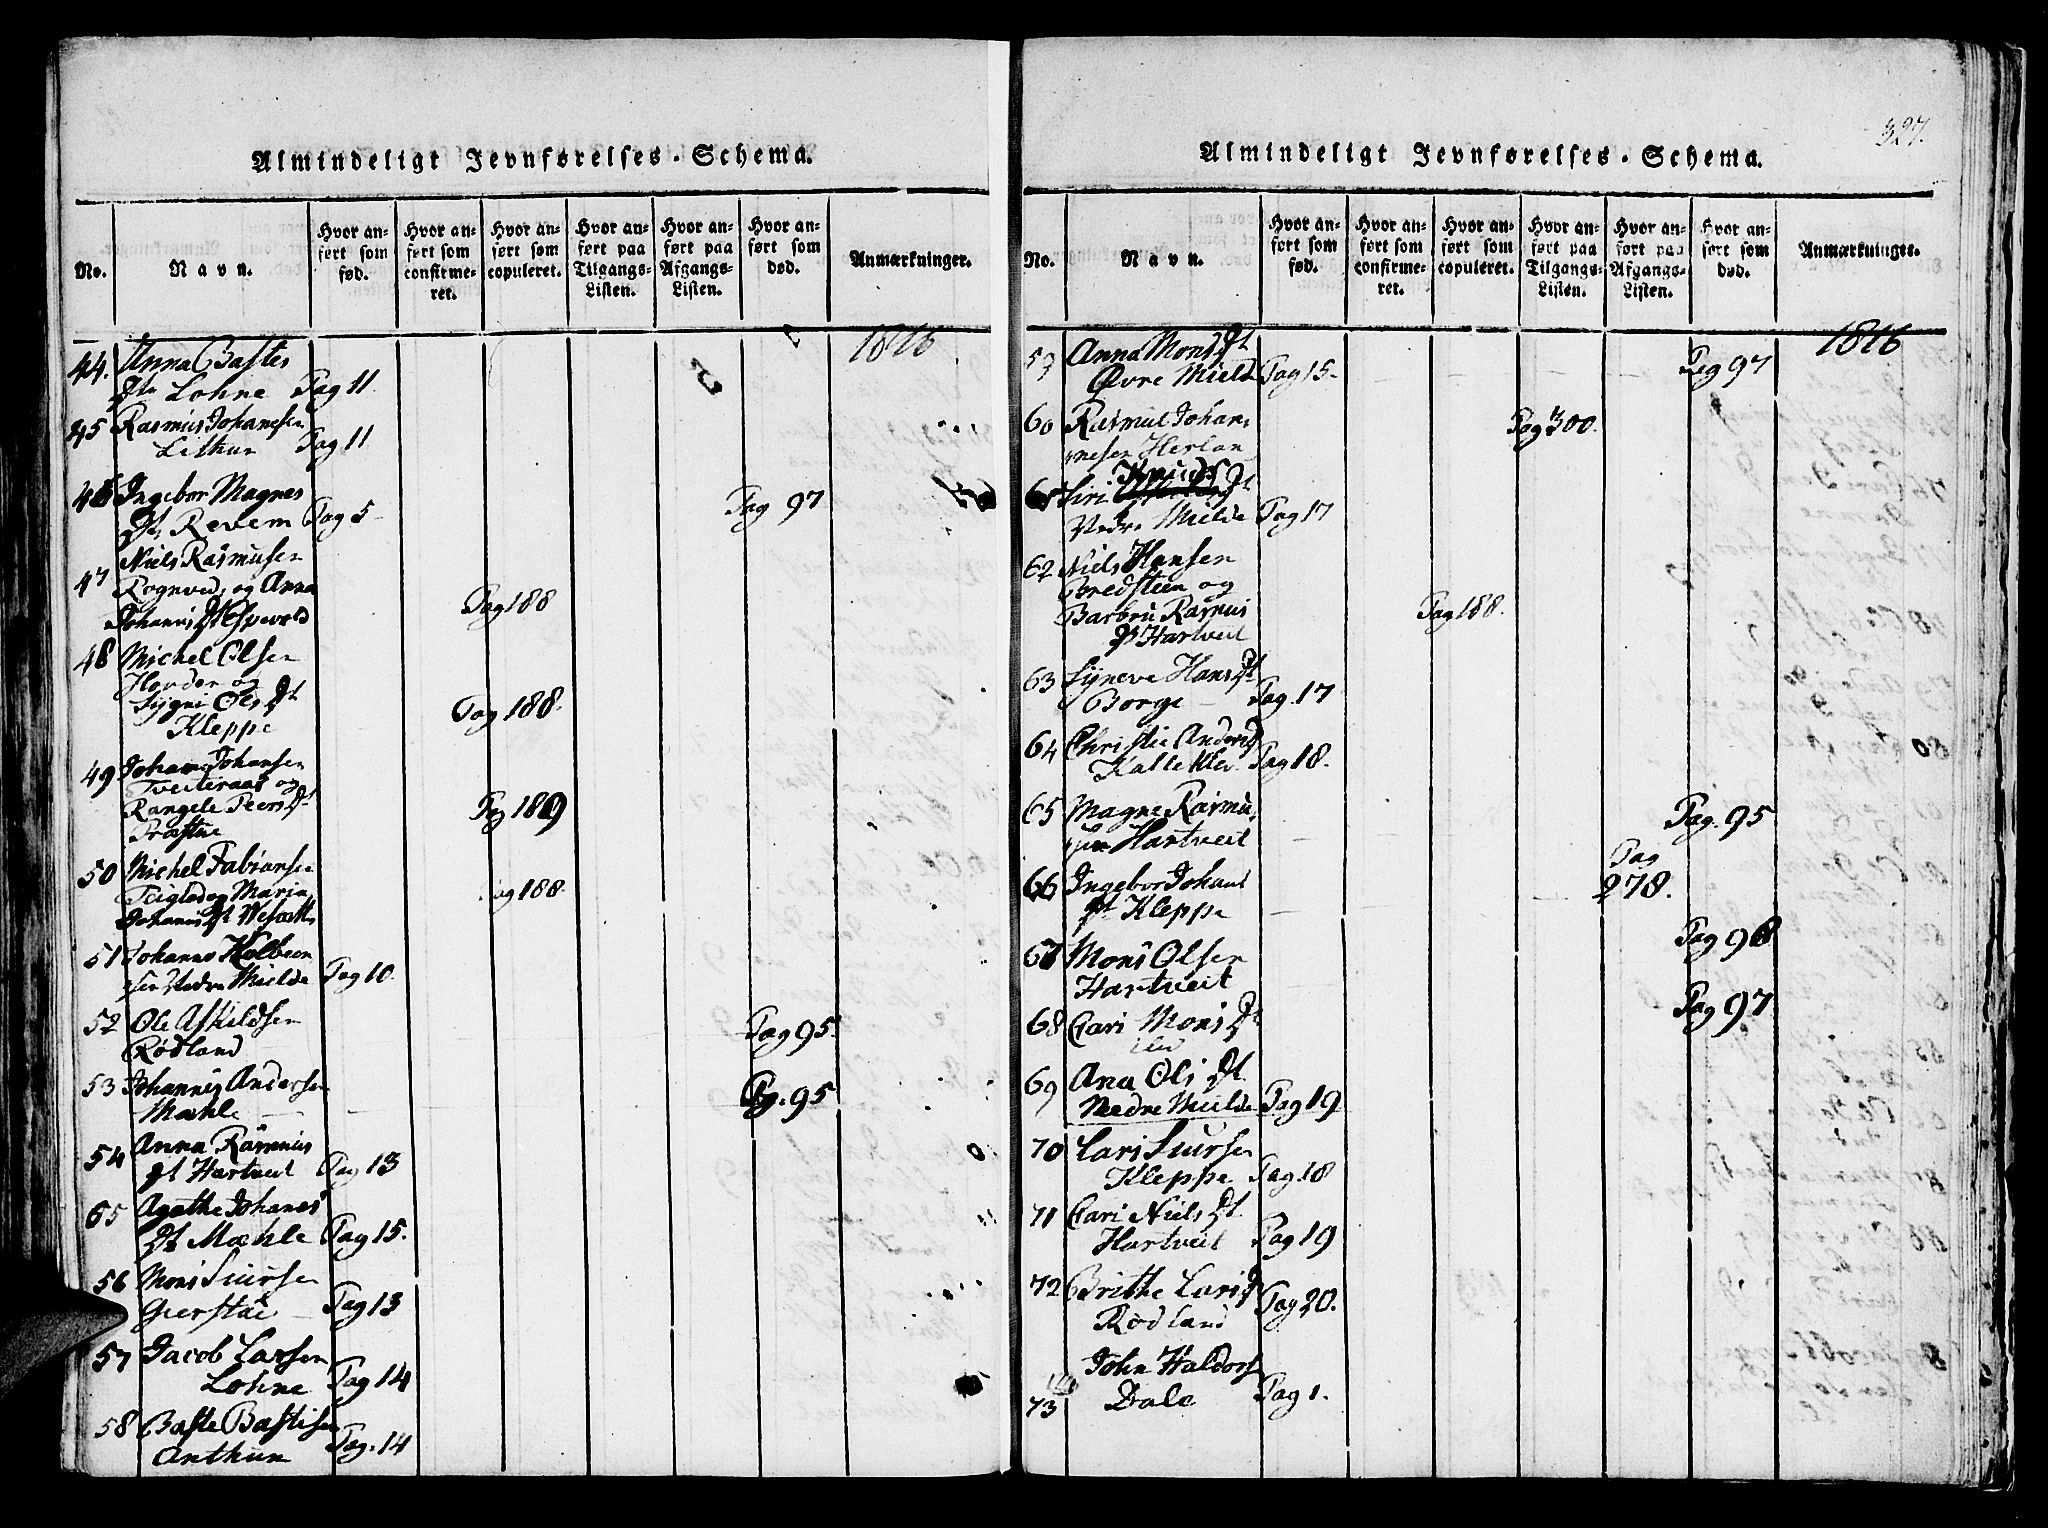 327.
Almindeligt Jevnførelses-Schema.
No.
Navn.
Hvor anført som fød.
Hvor anført som confirmeret.
Hvor anført som copuleret.
Hvor anført paa Tilgangs-Listen.
Hvor anført paa Afgangs-Listen.
Hvor anført som død.
Anmærkninger.
1816
44. Anna Bastes
Dt Lohne Pag 11.
45 Rasmus Johanesen
Lithun Pag 11
46 Ingebor Magnes
Dt Revem Pag 5 Pag 97
47 Niels Rasmusen
Rognved, og Anna
Johannis Dt Espevold Pag 188
48 Michel Olsen
Hovden og
Sygni Ols Dt
Kleppe Pag 188.
49 Johan Johansen
Tveiteraas og
Rangele Peers Dt
Præstue Pag 189
50 Michel Fabiansen
Teigland og Maria
Johanis Dt Pag 188.
51 Johanes Kolbeen
sen Nedre Mielde Pag 10.
52 Ole Askildsen
Rødland Pag 95.
53 Johannis Andersen
Mæhle Pag. 95
54 Anna Rasmus
Dt Hartveit Pag 13
55 Agathe Johanes
Dt Mæhle Pag 15.
56 Mons Siursen
Gierstad Pag 13
57 Jacob Larsen
Lohne Pag 14
58 Baste Bastisen
Arthun Pag. 14
Almindeligt Jevnførelses-Schema.
No.
Navn.
Hvor anført som fød.
Hvor anført som confirmeret.
Hvor anført som copuleret.
Hvor anført paa Tilgangs-Listen.
Hvor anført paa Afgangs-Listen.
Hvor anført som død.
Anmærkninger.
1816
59 Anna Mons Dt
Øvre Mield Pag 15. Pag 97
60 Rasmus Johan
nesen Herlan Pag 300.
Knuds
61 Siri Dt
Nedre Mielde Pag 17
62 Niels Hansen
Bredsteen og
Barbru Rasmus
Dt Hartveit Pag 188.
63 Syneve Hans Dt
Borge Pag. 17
64 Christie Anders Dt
Kalleklev Pag 18.
65 Magne Rasmu
sen Hartveit Pag. 95
66 Ingebor Johans
Dt Kleppe Pag 278.
67 Mons Olsen
Hartveit Pag 98
68 Cari Mons Dt
Pag 97
69 Ana Ols Dt
Nedre Mielde Pag 19
70 Lars Siursen
Kleppe Pag 18
71 Cari Niels Dt
Hartveit Pag 19
72 Brithe Lars Dt
Rødland Pag 20.
73 John Haldors
Dale Pag 1.